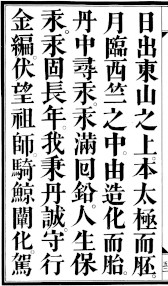 日出東山之上本太極而胚。
月臨西竺之中。由造化而胎。
丹中尋汞。汞滿回鉛。人生保
汞。汞固長年。我秉丹誠。守行
金編。伏望祖師。騎鯨闡化。駕